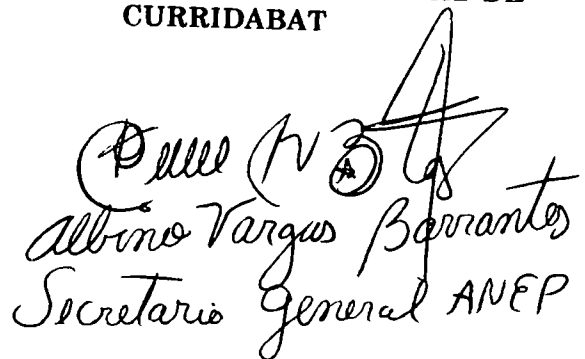 CURRIDABAT
Albino Vargas Barrantes
Secretario General ANEP